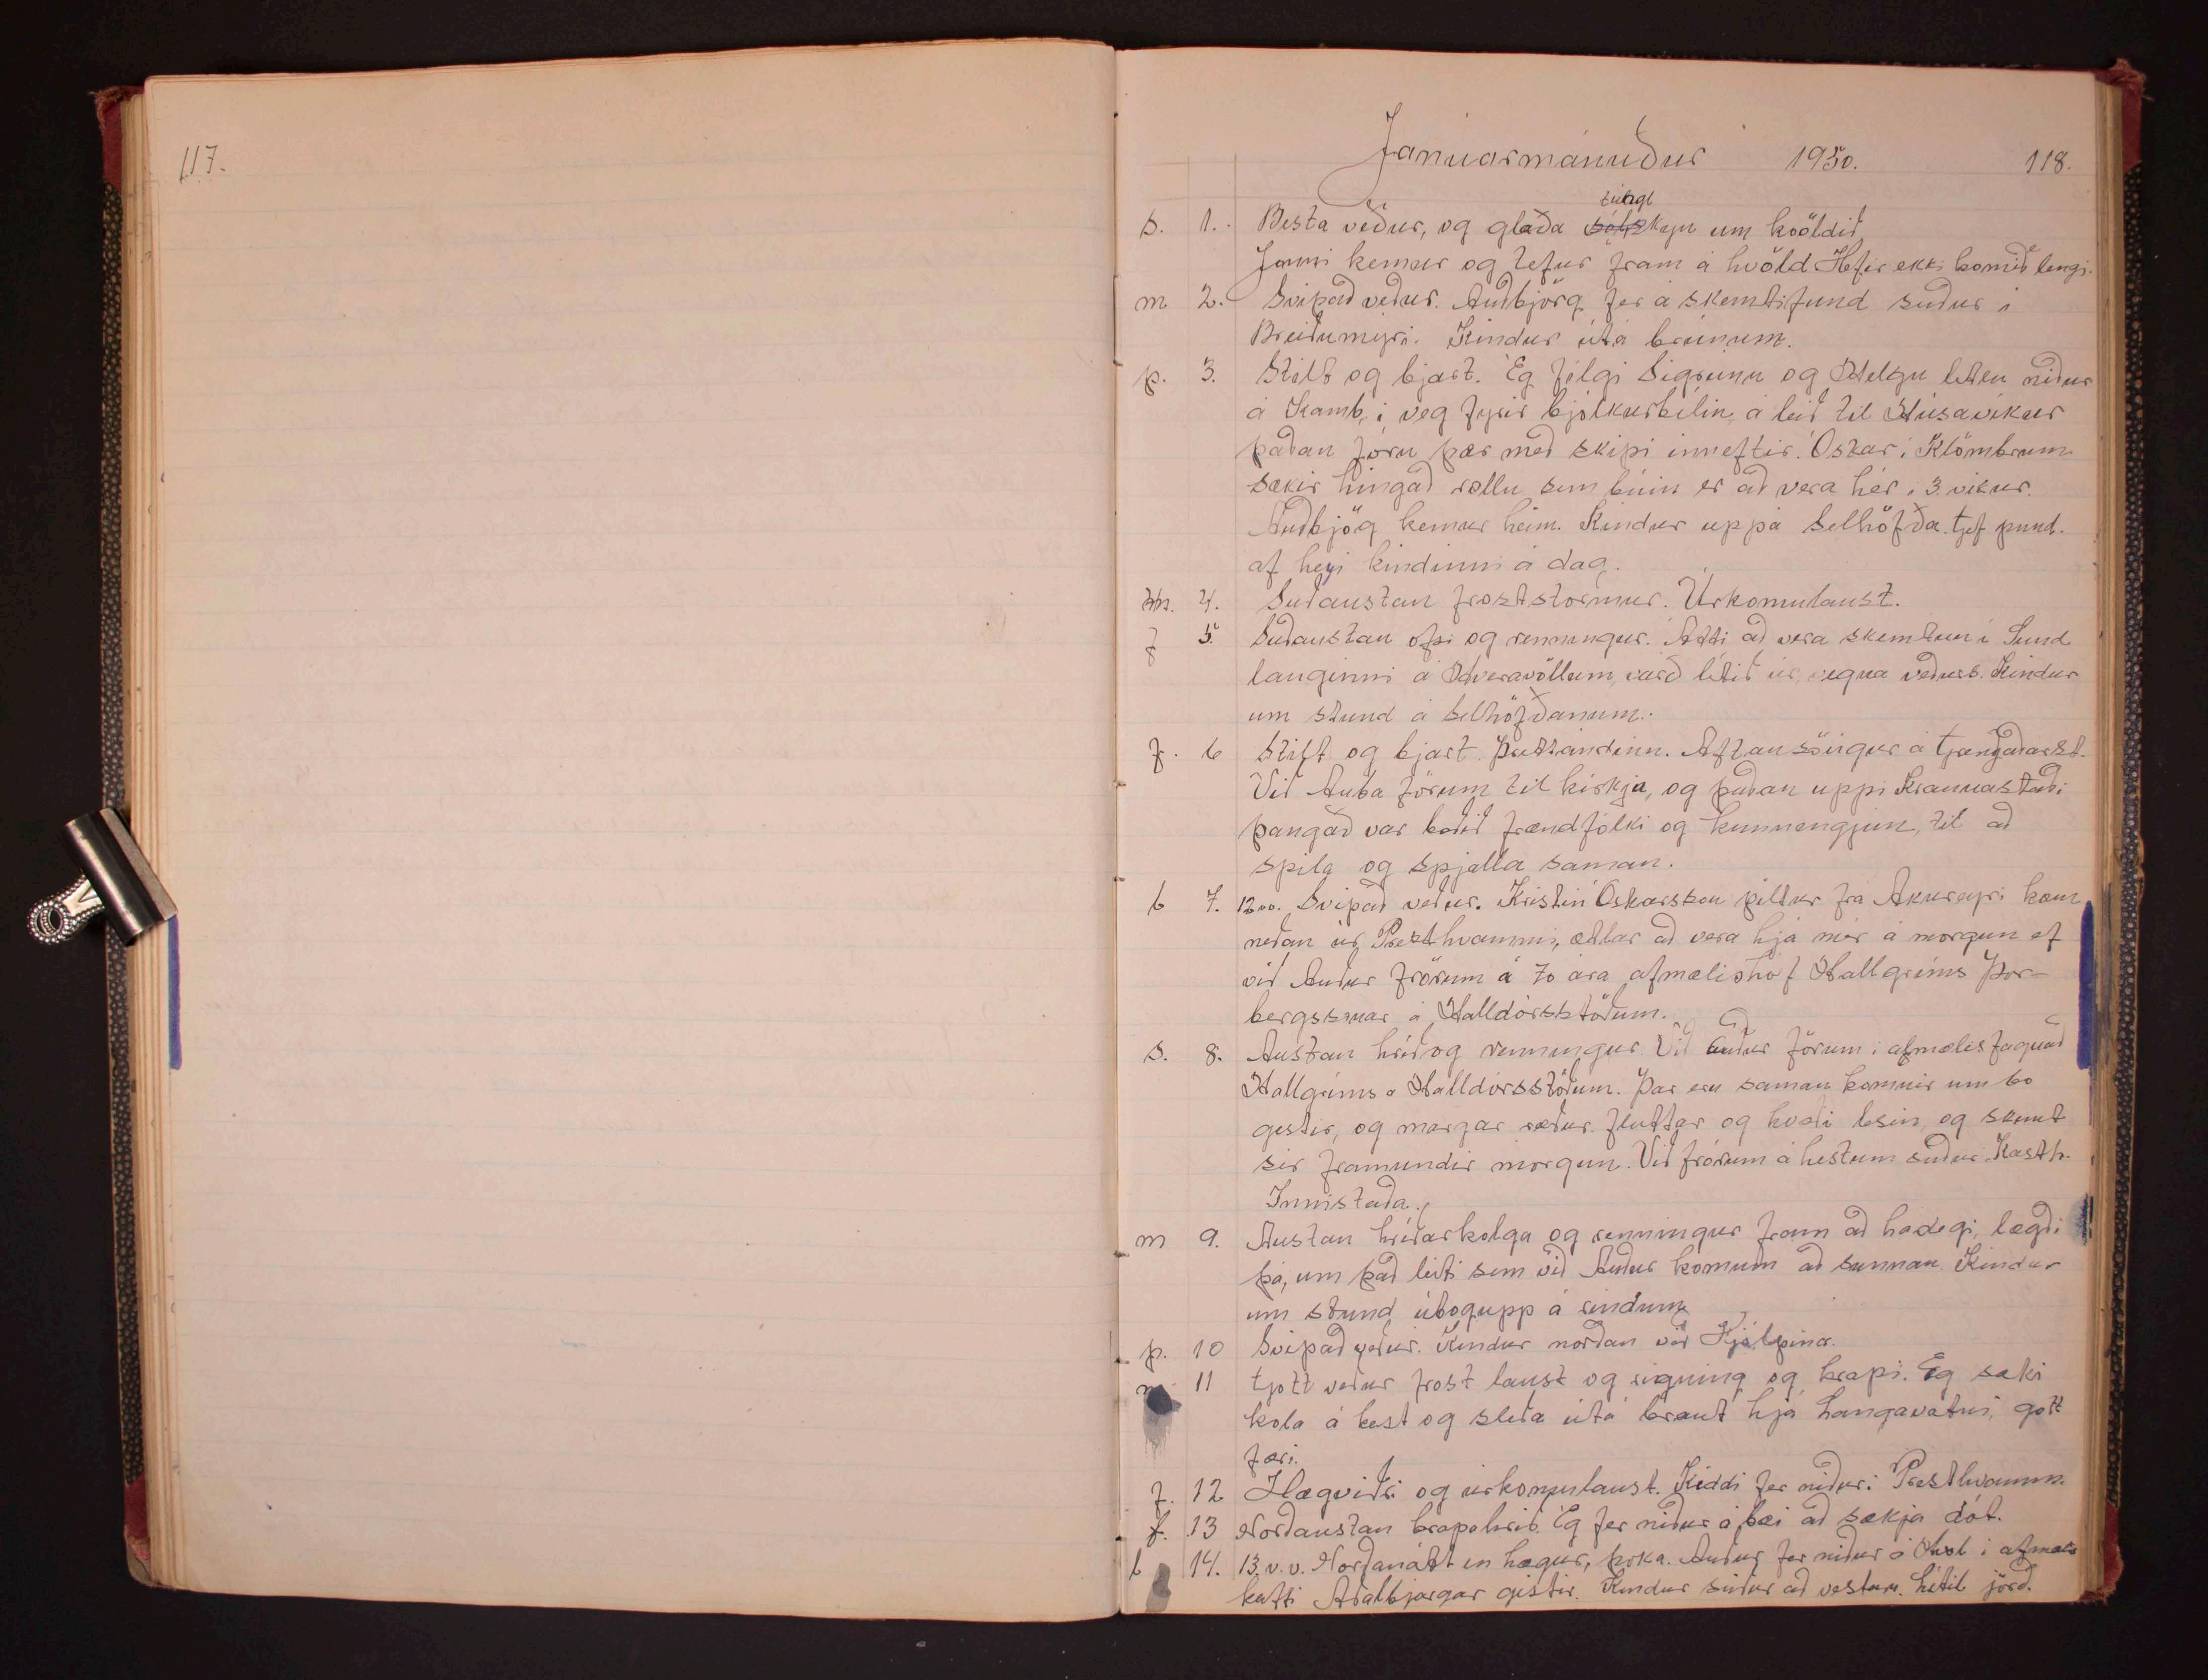 117.
Januarmánuður 1950. 118.
túngl
s. 1. Besta veður, og glaða sólskyn um kvöldið,
Jonni kemur og tefur fram á kvöld. Hefir ekki komið lengi.
m 2. Svipað veður. Auðbjörg fer á skemtifund suður í
Breiðumýri. Kindur útá brúnum.
þ. 3. Stilt og bjart. Ég fylgi Sigrúnu og Helgu litlu niður
á Kamb, í veg fyrir mjólkurbílin á leið til Húsavíkur
þaðan fóru þær með skipi inneftir. Óskar í Klömbrum
sækir hingað rollu sem búin er að vera hér í 3 vikur.
Auðbjög kemur heim. Kindur uppá Selhöfða. Gef pund.
af heyi kindinni á dag.
m. 4. Suðaustan froststormur. Úrkomulaust.
f 5. Suðaustan ofsi og renningur. Átti að vera skemtun í Sund
lauginni á Hveravöllum, varð lítið úr, vegna veðurs. Kindur
um stund á Selhöfðanum.
f. 6 Stilt og bjart. Þrettándinn. Aftansöngur á Grenjaðarst.
Við Auða fórum til kirkja, og þaðan uppí Kraunastaði
þangað var boðið frændfólki og kunnengjun, til að
spila og spjalla saman.
l 7. 12 v.v. Svipað veður. Kristin Óskarsson piltur fra Akureyri kom
neðan úr Presthvammi, ætlar að vera hjá mér á morgun ef
við Auður frörum á 70 ára afmælishóf Hallgríms Þor-
bergssonar á Halldórsstöðum.
s. 8. Austan hríð og renningur. Við Auður förum í afmælisfagnað
Hallgríms á Halldórsstöðum. Þar eru saman komnir um 60
gestir, og margar ræður fluttar og kvæði lesin, og skemt
sér framundir morgun. Við frórum á hestum suður. Kasth.
Innistaða.
m 9. Austan hríðarkolga og renningur fram að hádegi, lægði
þá, um það leiti sem við Auður komum að sunnan. Kindur
um stund útogupp á rindum
þ. 10 Svipað veður. Kindur norðan við Kjálpina.
m 11 Gott veður frost laust og rigning og krapi. Ég sæki
kola á hest og sleða útá braut hjá Langavatni, gott
færi.
f. 12 Hægviðri og úrkomulaust. Kiddi fer niður í Presthvamm.
f. 13 Norðaustan krapahríð. Ég fer niður á bæi að sækja dót.
l 14. 13. v.v. Norðanátt en hægur, þoka. Auður fer niður á Hvol í afmælis
kaffi Aðalbjargar gistir. Kindur suður að vestan. Lítil jörð.